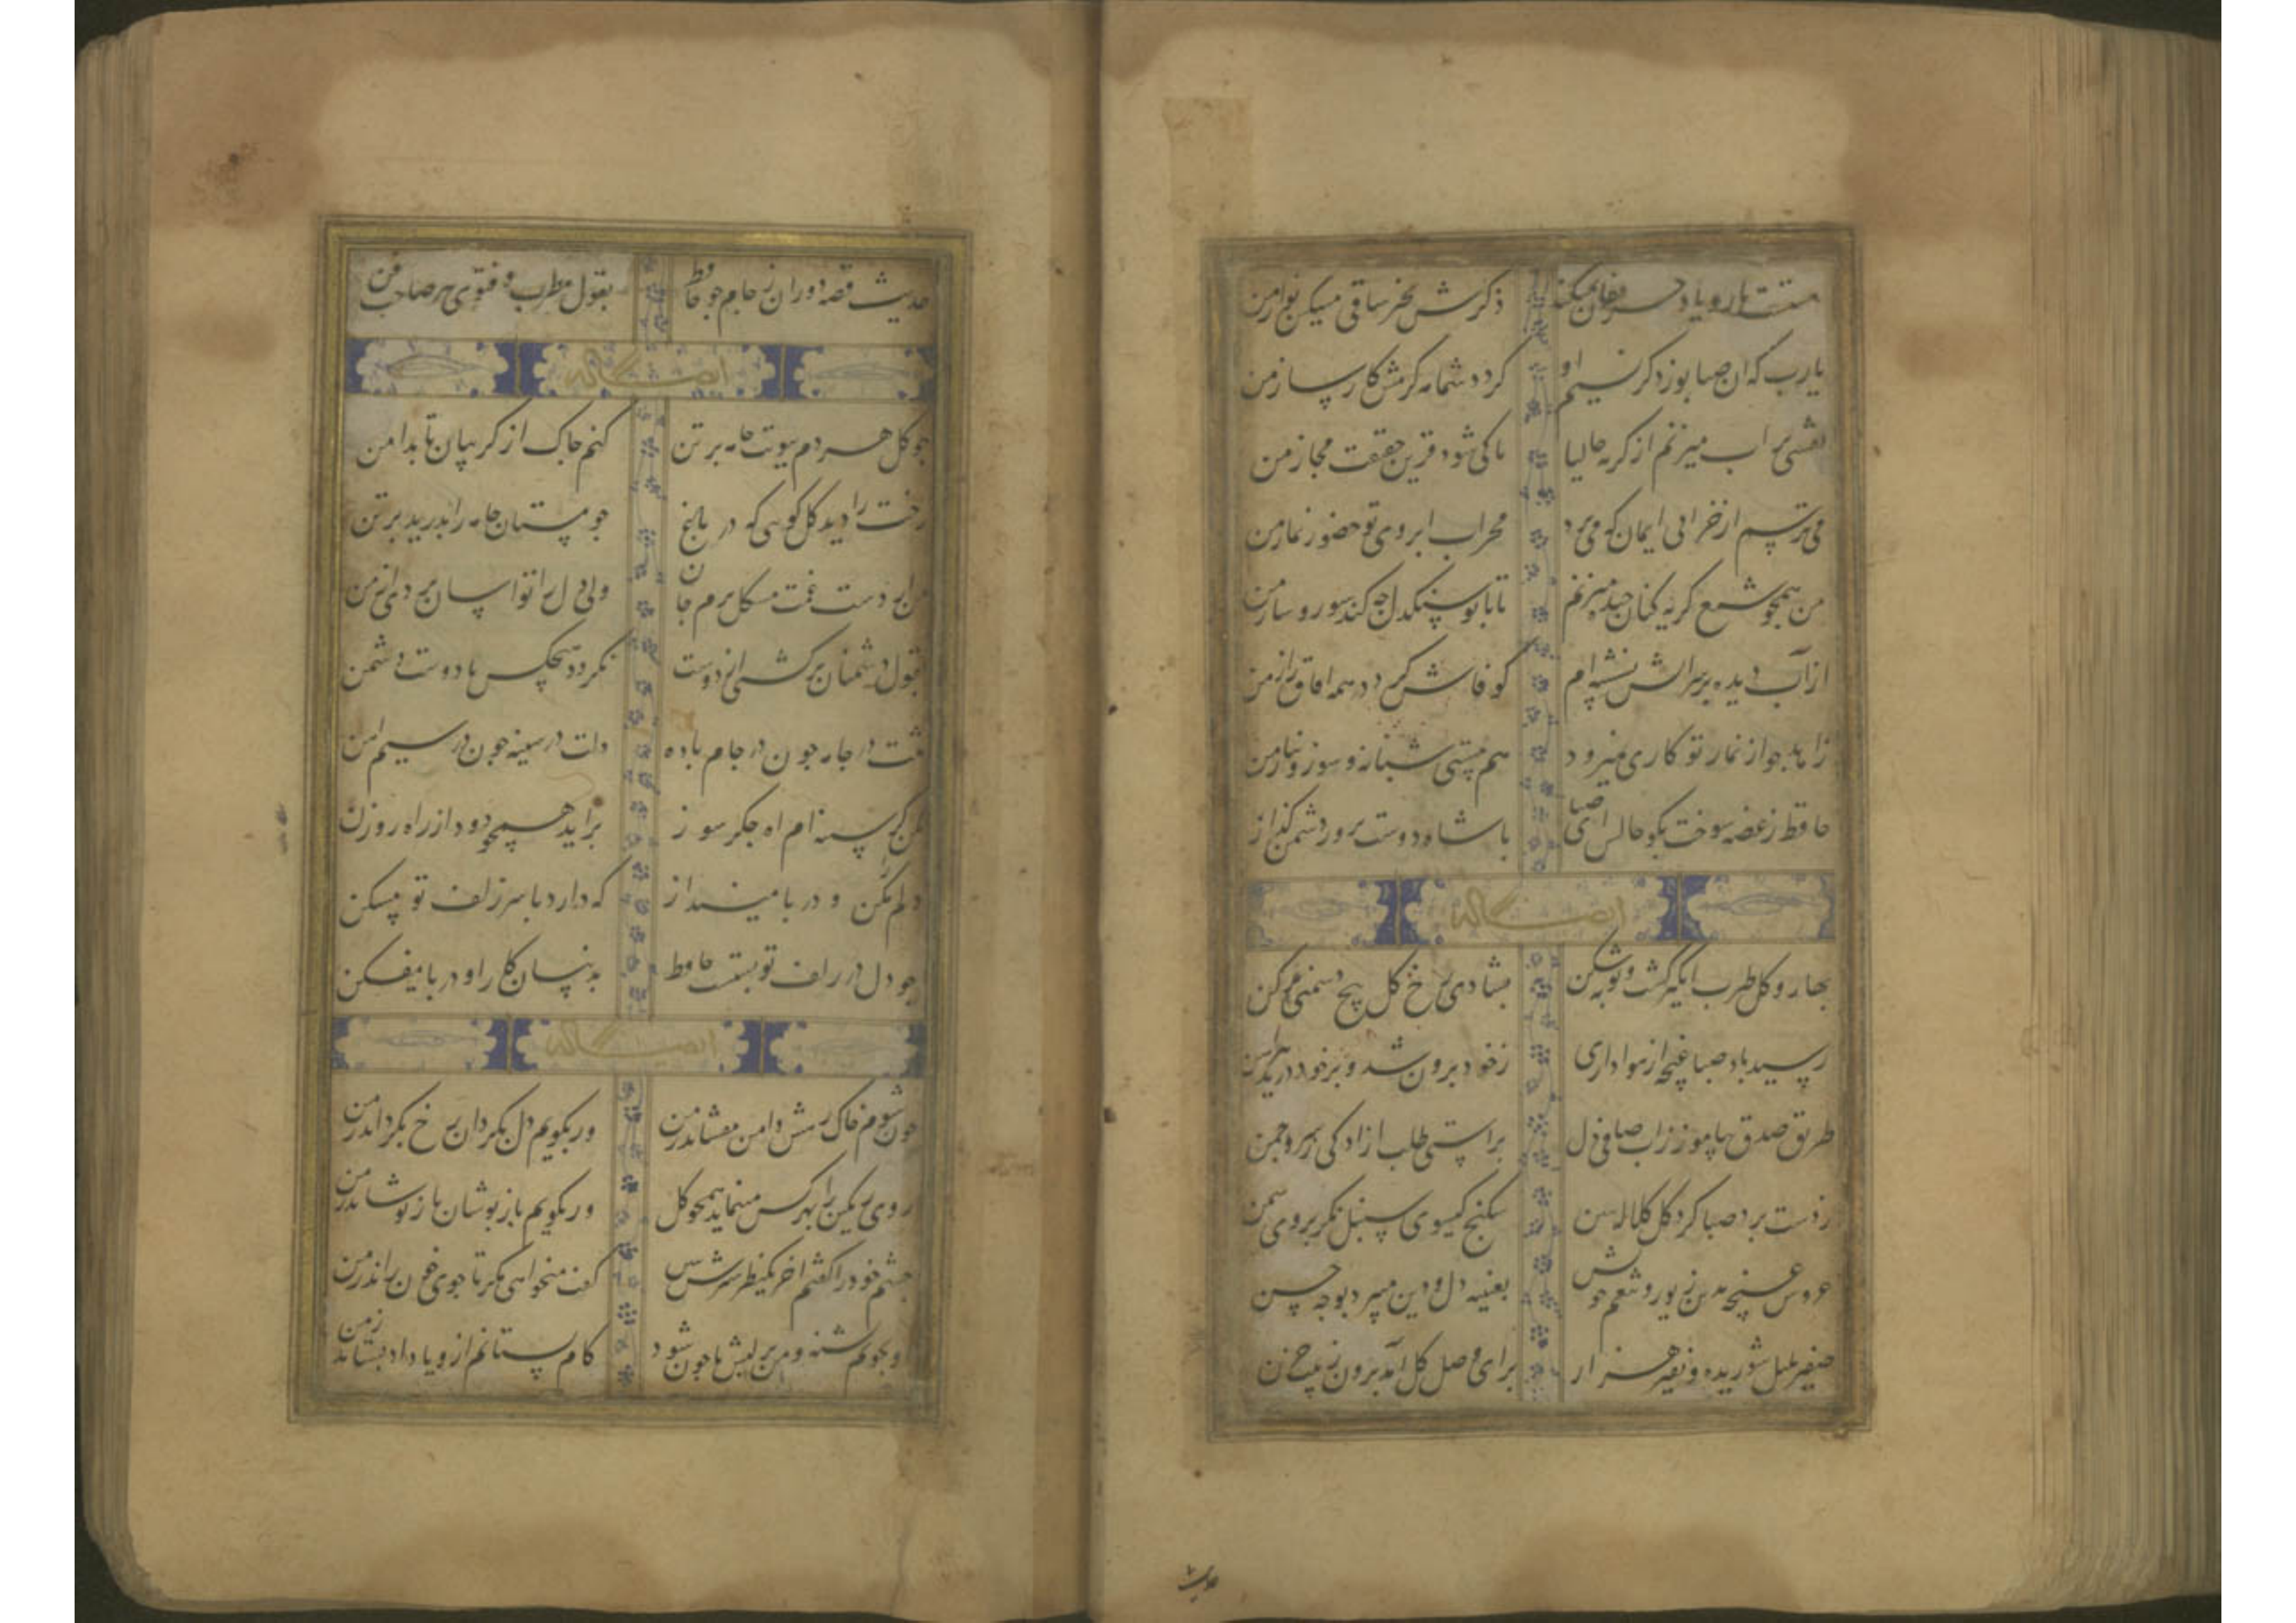 مستست یار و یاد حریفان نمیکند ذکرش بخیر ساقی مسکین نواز من
یارب کی آن صبا بوزد کز نسیم او کردد شمامه کرمش کارساز من
نقشی بر اب میزنم از کریه حالیا تا کی شود قرین حقیقت مجاز من
می ترسم از خرابی ایمان که می برد محراب ابروی تو حضور نماز من
من همچو شمع کریه کنان جند میزنم تا با تو سنکدل جه کند سوز و ساز من
از آب دیده بر سر اتش نشسته ام کو فاش کرد در همه افاق راز من
زاهد جو از نماز تو کاری نمیرود هم مستی شبانه و سوز و نیاز من
حافظ ز غصه سوخت بکو حالش ای صبا با شاه دوست پرور دشمن کداز
ایضا له
بهار و کل طرب انکیز کشت و توبه شکن بشادی رخ کل بیخ غم ز دل برکن
رسید باد صبا غنچه از هواداری ز خود برون شد و بر خود درید پیراهن
طریق صدق بیاموز ز اب صافی دل براستی طلب ازادکی ز سرو چمن
ز دست برد صبا کرد کل کلاله بین شکنج کیسوی سنبل نکر بروی سمن
عروس غنچه بدین زیور و تبسم خوش بعینه دل و دین میبرد بوجه حسن
صفیر بلبل شوریده و نفیر هزار برای وصل کل آمد برون ز بیت حزن
حدیث
حدیث قصه دوران ز جام جو حافظ بقول مطرب و فتوی پیر صاحب فن
ایضا له
جو کل هر دم ببویت جامه بر تن کنم جاک از کریبان تا بدامن
تنت را دید کل کویی که در باغ جو مستان جامه را بدرید بر تن
من از دست غمت مشکل برم جان ولی دل را تو اسان بردی از من
بقول دشمنان برکشتی از دوست نکردد هیچکس با دوست دشمن
تنت در جامه جون در جام باده دلت در سینه جون در سیم اهن
مکن کز سینه ام اه جکر سوز براید همچو دود از راه روزن
دلم را مشکن و در پا مینداز که دارد با سر زلف تو مسکن
جو دل در زلف تو بستست حافظ بدینسان کار او در پا میفکن
ایضا له
جون شوم خاک رهش دامن بیفشاند ز من ور بکویم دل بکردان رخ بکرداند ز من
روی رنکین را بهر کس مینماید همجو کل ور بکویم باز پوشان باز پوشاند ز من
جشم خود را کفتم اخر یکنظر سیرش ببین کفت میخواهی مکر تا جوی خون راند ز من
او بخونم تشنه و من بر لبش تا جون شود کام بستانم ازو یا داد بستاند ز من